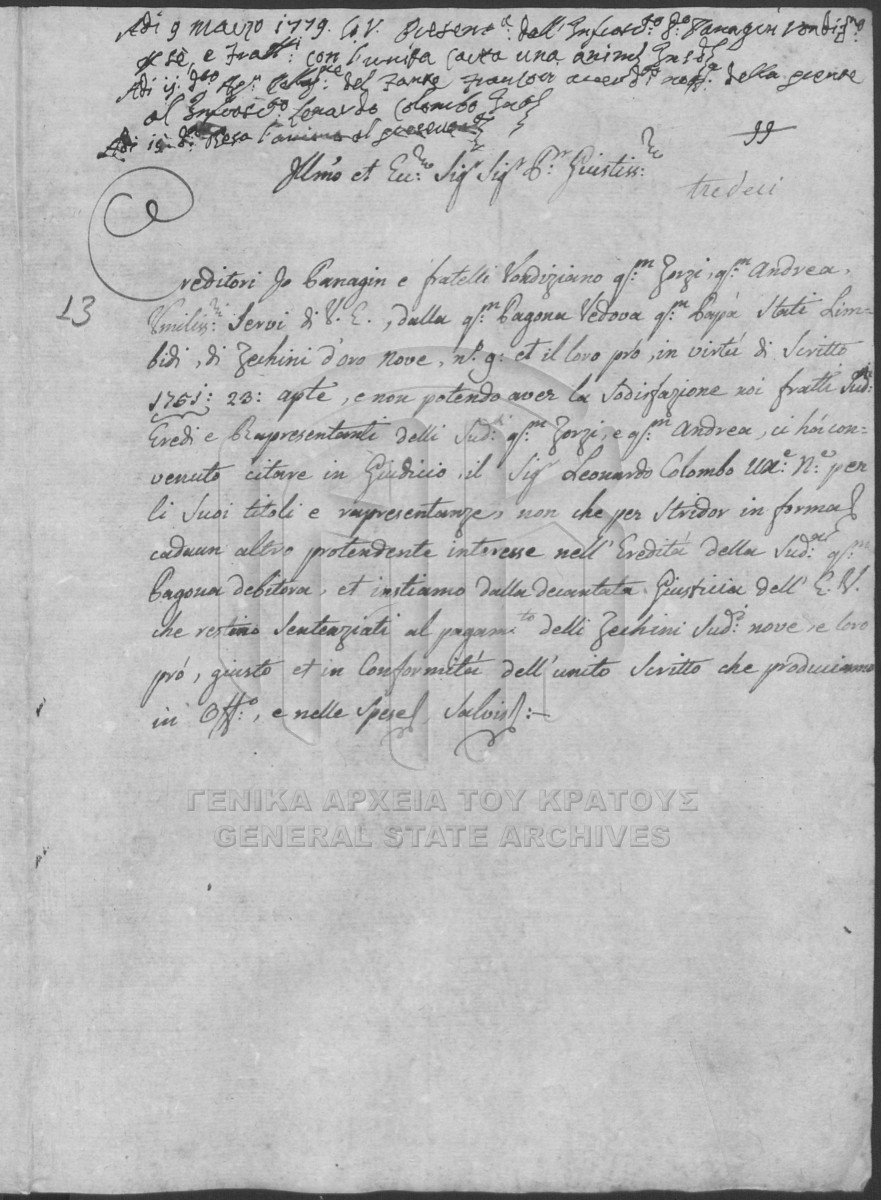 Adi 9 Marzo 1779. S.V. Presen:ta dall'Infrascto Sr Panagin Vondizno
p se, e fratti: con l'unita carta una animd Insd
Adi 11: dto Rifi del Fante haver notta: della presente
al Infrascto Leonardo Colombo
Adi 15: do Resa l'anima al presente
99
Illmo et Ecc:mo Sigr Sigr Pr: Giustiss:mo
tredeci
Creditori Jo Panagin e fratelli Vondiziano qm: Zorzi, qm: Andrea,
13
Umiliss:mi Servi di V. E., dalla qm: Pagona Vedova qm: Papà Stati Lim-
bidi, di Zechini d'oro nove, no: 9: et il loro prò, in virtù di Scritto
1751: 23: apte, e non potendo aver la sodisfazione noi fratti Sudi:
Eredi e Rapresentanti delli Sudi: qm: Zorzi, e qm: Andrea, ci hà con-
venuto citare in Giudicio, il Sigr Leonardo Colombo Uxe: Ne: per
li suoi titoli e rapresentanze, non che per stridor in forma
cadaun altro pretendente interesse nell'Eredità della Suda: qm:
Pagona debitora, et instiamo dalla decantata Giustizia dell'E.V.
che restino sentenziati al pagamto: delli Zechini Sudi: nove, e loro
prò, giusto et in Conformità dell'unito Scritto che produciamo
in Offo:, e nelle spese, Salvis:—
ΓΕΝΙΚΑ ΑΡΧΕΙΑ ΤΟΥ ΚΡΑΤΟΥΣ
GENERAL STATE ARCHIVES